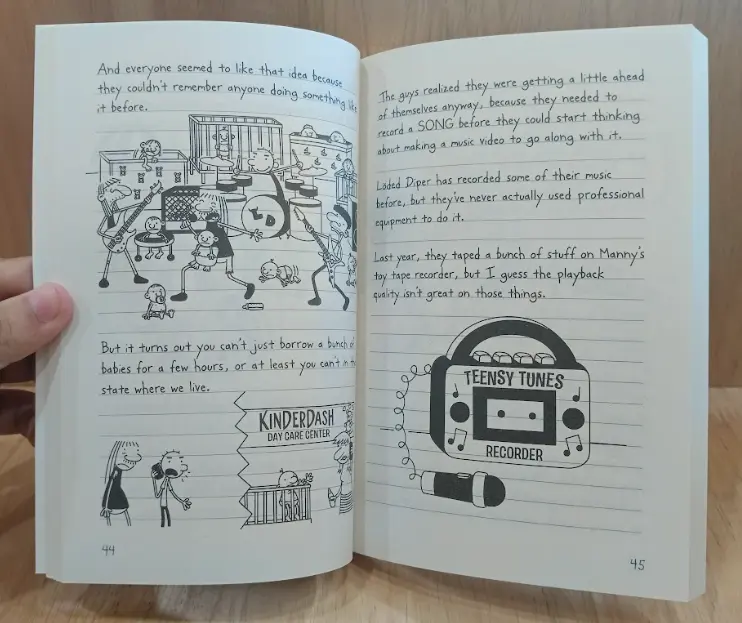 And everyone seemed to like that idea because
they couldn't remember anyone doing something like
it before.
LD
But it turns out you can't just borrow a bunch of
babies for a few hours, or at least you can't in the
state where we live.
KINDERDASH
DAY CARE CENTER
44
The guys realized they were getting a little ahead
of themselves anyway, because they needed to
record a SONG before they could start thinking
about making a music video to go along with it.
Löded Diper has recorded some of their music
before, but they've never actually used professional
equipment to do it.
Last year, they taped a bunch of stuff on Manny's
toy tape recorder, but I guess the playback
quality isn't great on those things.
TEENSY TUNES
RECORDER
45